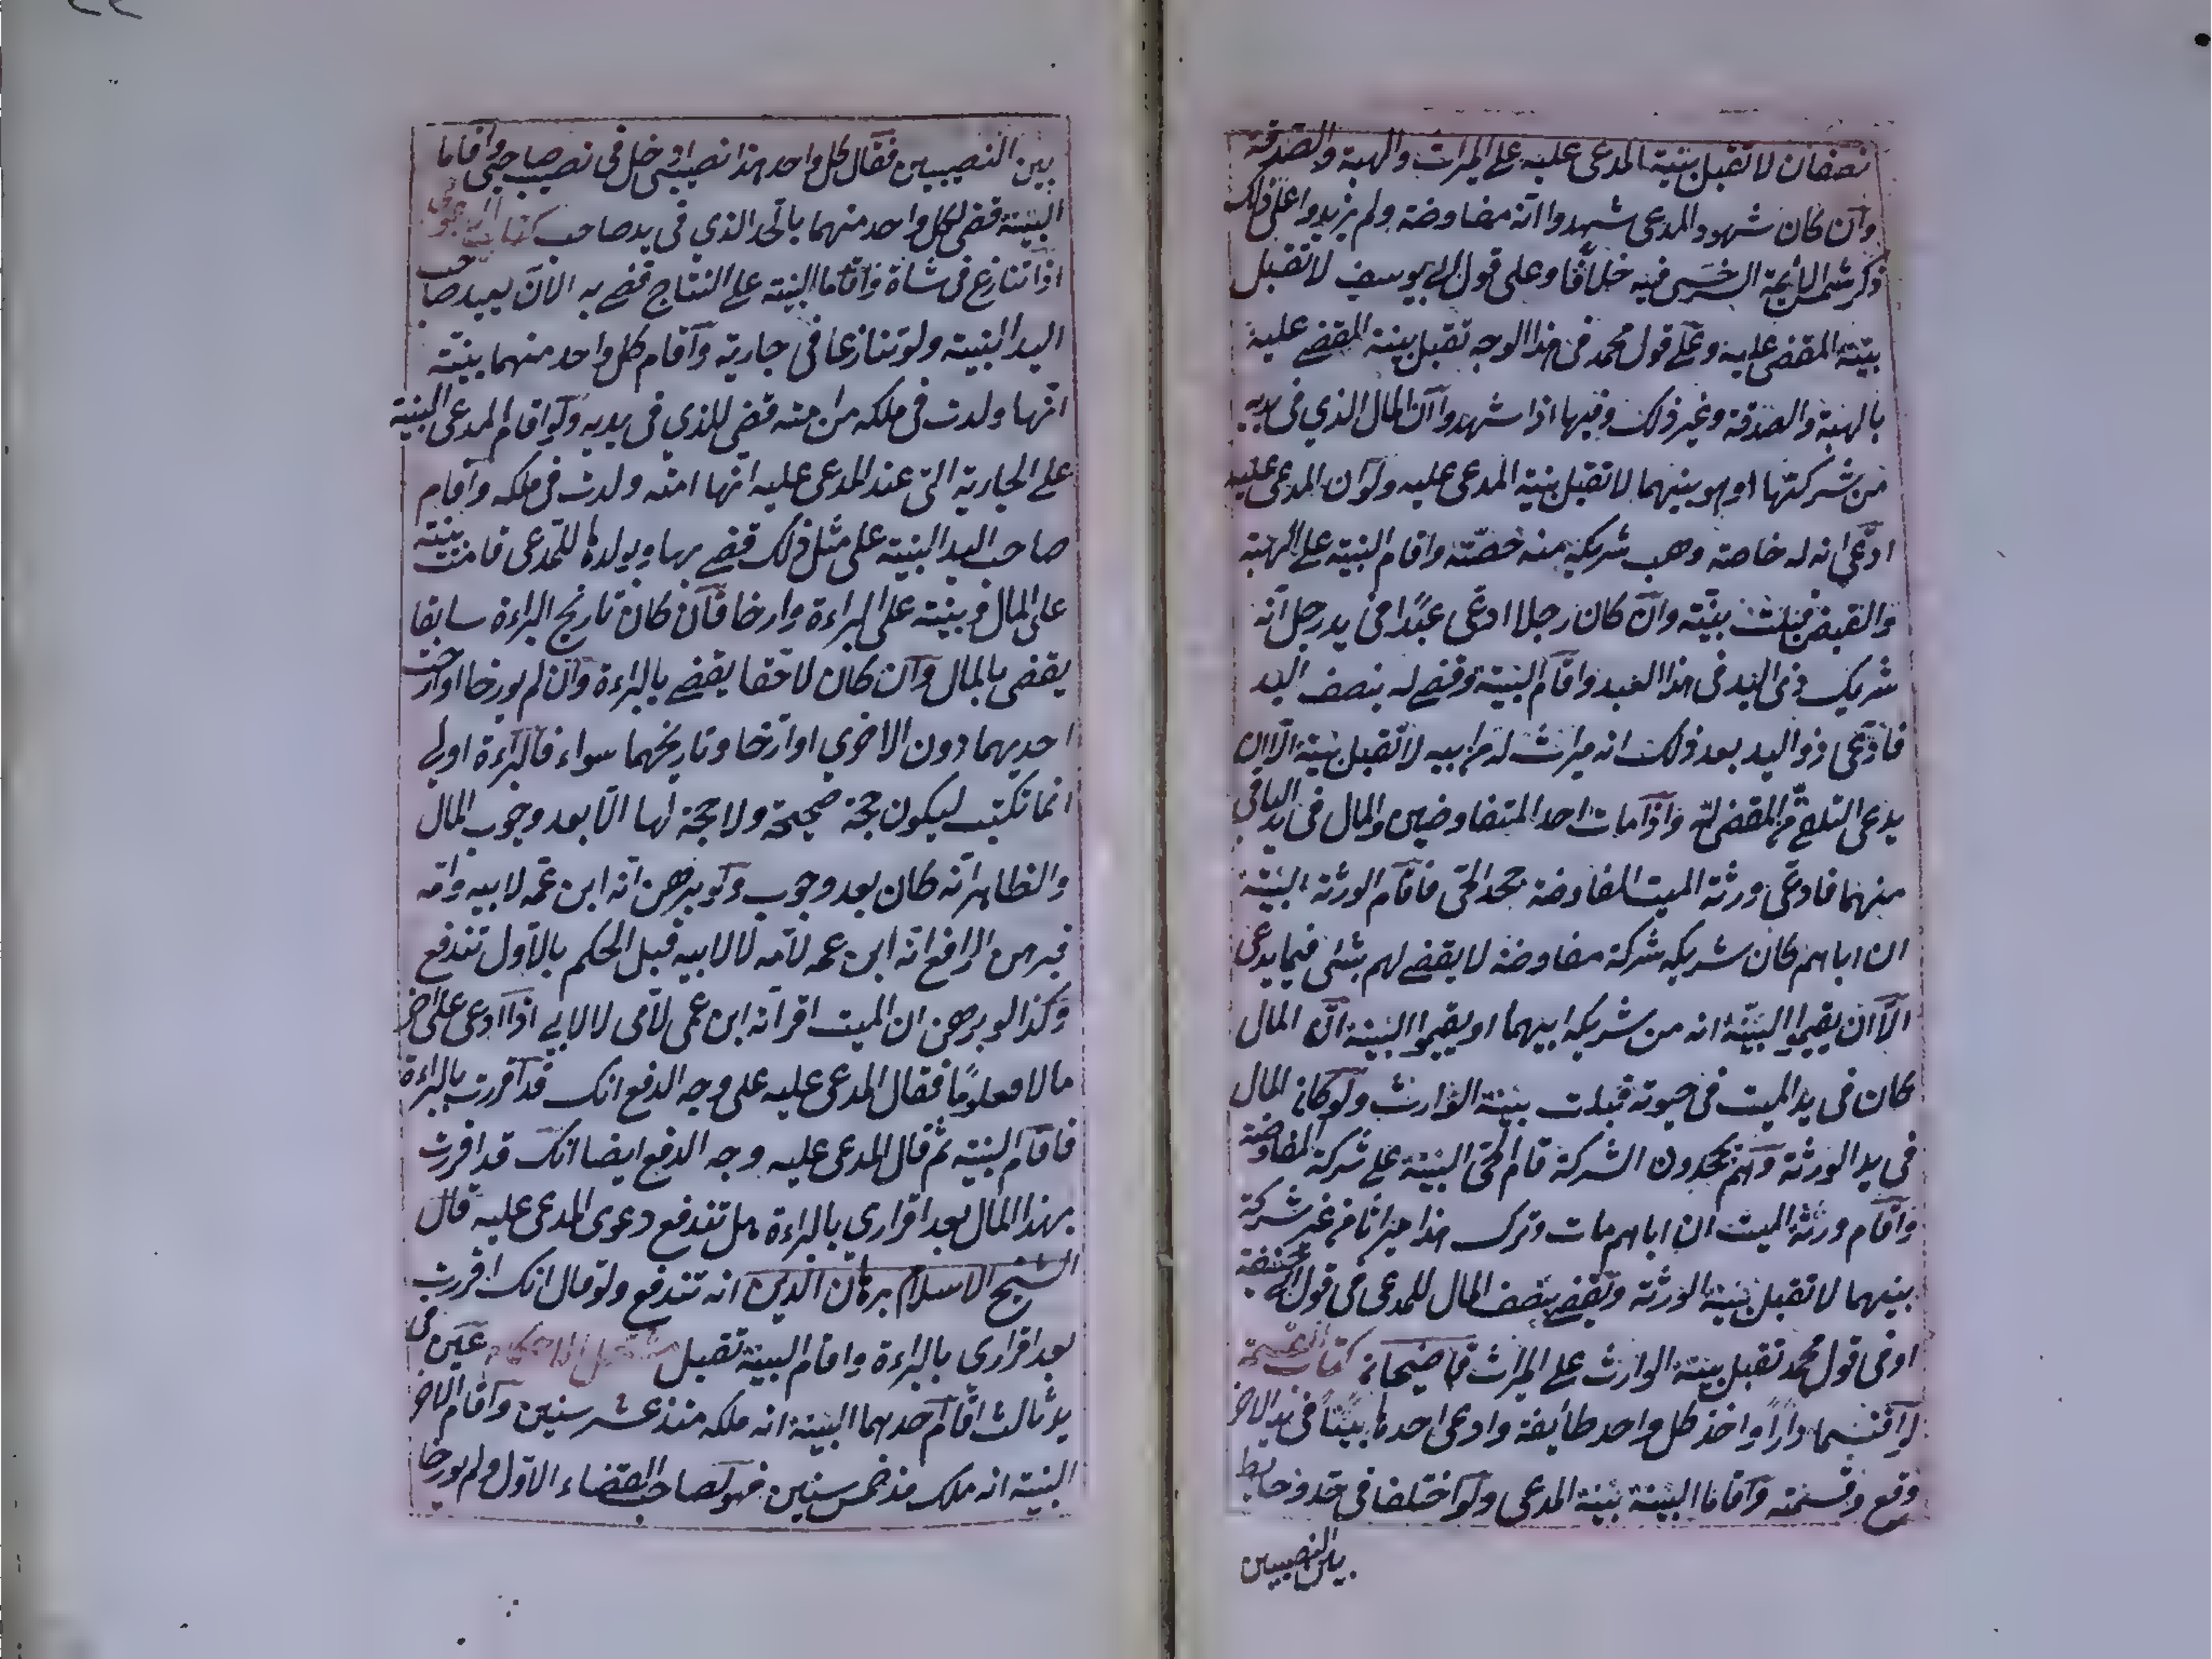 نصفان لا تقبل بينة المدعى عليه على الميراث والهبة والصدقة
وان كان شهود المدعى شهدوا انه مفاوضة ولم يزيدوا على ذلك
ذكر شمس الائمة السرخسى فيه خلافا وعلى قول ابى يوسف لا تقبل
بينة المقضى عليه وعلى قول محمد فى هذا الوجه تقبل بينة المقضى عليه
بالهبة والصدقة وغير ذلك وفيها اذا شهدوا ان المال الذي فى يديه
من شركتها او هو بينهما لا تقبل بينة المدعى عليه ولو ان المدعى عليه
ادعى انه له خاصة وهب شريكه منه حصته واقام البينة على الهبة
والقبض قبلت بينته وان كان رجلا ادعى عبدا فى يد رجل انه
شريك ذى اليد فى هذا العبد واقام البينة وقضى له بنصف اليد
فادعى ذو اليد بعد ذلك انه ميراث له من ابيه لا تقبل بينة الا ان
يدعى التلقى من المقضى له واذا مات احد المتفاوضين والمال فى يد الباقى
منهما فادعى ورثة الميت المفاوضة جحد الحى فاقام الورثة البينة
ان اباهم كان شريكه شركة مفاوضة لا يقضى لهم بشئ فيما يدعى
الا ان يقيموا البينة انه من شريكه ابيهما او يقيموا البينة ان المال
كان فى يد الميت فى حيوته قبلت بينة الوارث ولو كان المال
فى يد الورثة وهم يجحدون الشركة قام الحى البينة على شركة المفاوضة
واقام ورثة الميت ان اباهم مات وترك هذا ميراثا من غير شركة
بينهما لا تقبل بينة الورثة وتقضى بنصف المال للمدعى فى قول ابى حنيفة
او فى قول محمد تقبل بينة الوارث على الميراث قاضيخان كتاب القسمة
لو اقتسما دارا واخذ كل واحد طائفة وادعى احدهما بيتا فى يد الاخر
وقع فى قسمته واقاما البينة بينة المدعى ولو اختلفا فى حد وحايط
بين النصيبين
بين النصيبين فقال كل واحد هذا نصيبى دخل فى نصيب صاحبى واقاما
البينة قضى لكل واحد منهما بالحد الذي فى يد صاحب كتاب الدعوى
اذا تنازع فى شاة واقاما البينة على النتاج قضى به الان بيد صاحب
اليد البينة ولو تنازعا فى جارية واقام كل واحد منهما بينة
انها ولدت فى ملكه من امته قضى للذي فى يديه ولو اقام المدعى البينة
على الجارية التى عند المدعى عليه انها امته ولدت فى ملكه واقام
صاحب اليد البينة على مثل ذلك قضى بها وبولدها للمدعى قامت بينة
على المال وبينة على البراءة وارخا فان كان تاريخ البراءة سابقا
يقضى بالمال وان كان لاحقا يقضى بالبراءة وان لم يورخا او ارخت
احديهما دون الاخرى او ارخا وتاريخهما سواء فالبراءة اولى
انما تكتب ليكون حجة صحيحة ولا حجة لها الا بعد وجوب المال
والظاهر انه كان بعد وجوب ولو برهن انه ابن عمه لابيه وامه
فبرهن الدافع انه ابن عمه لامه لا لابيه قبل الحكم بالاول تندفع
وكذا لو برهن ان الميت اقر انه ابن عمى لامى لا لابى اذا ادعى على اخر
مالا معلوما فقال المدعى عليه على وجه الدفع انك قد اقررت بالبراءة
فاقام البينة ثم قال المدعى عليه وجه الدفع ايضا انك قد اقررت
بهذا المال بعد اقراري بالبراءة هل تندفع دعوى المدعى عليه قال
الشيخ الاسلام برهان الدين انه تندفع ولو قال انك اقررت
بعد اقرارى بالبراءة واقام البينة تقبل مشتمل الاحكام عين فى
يد ثالث اقام احدهما البينة انه ملكه منذ عشر سنين واقام الاخر
البينة انه ملك مذ خمس سنين فهو لصاحب القضاء الاول ولم يورخا